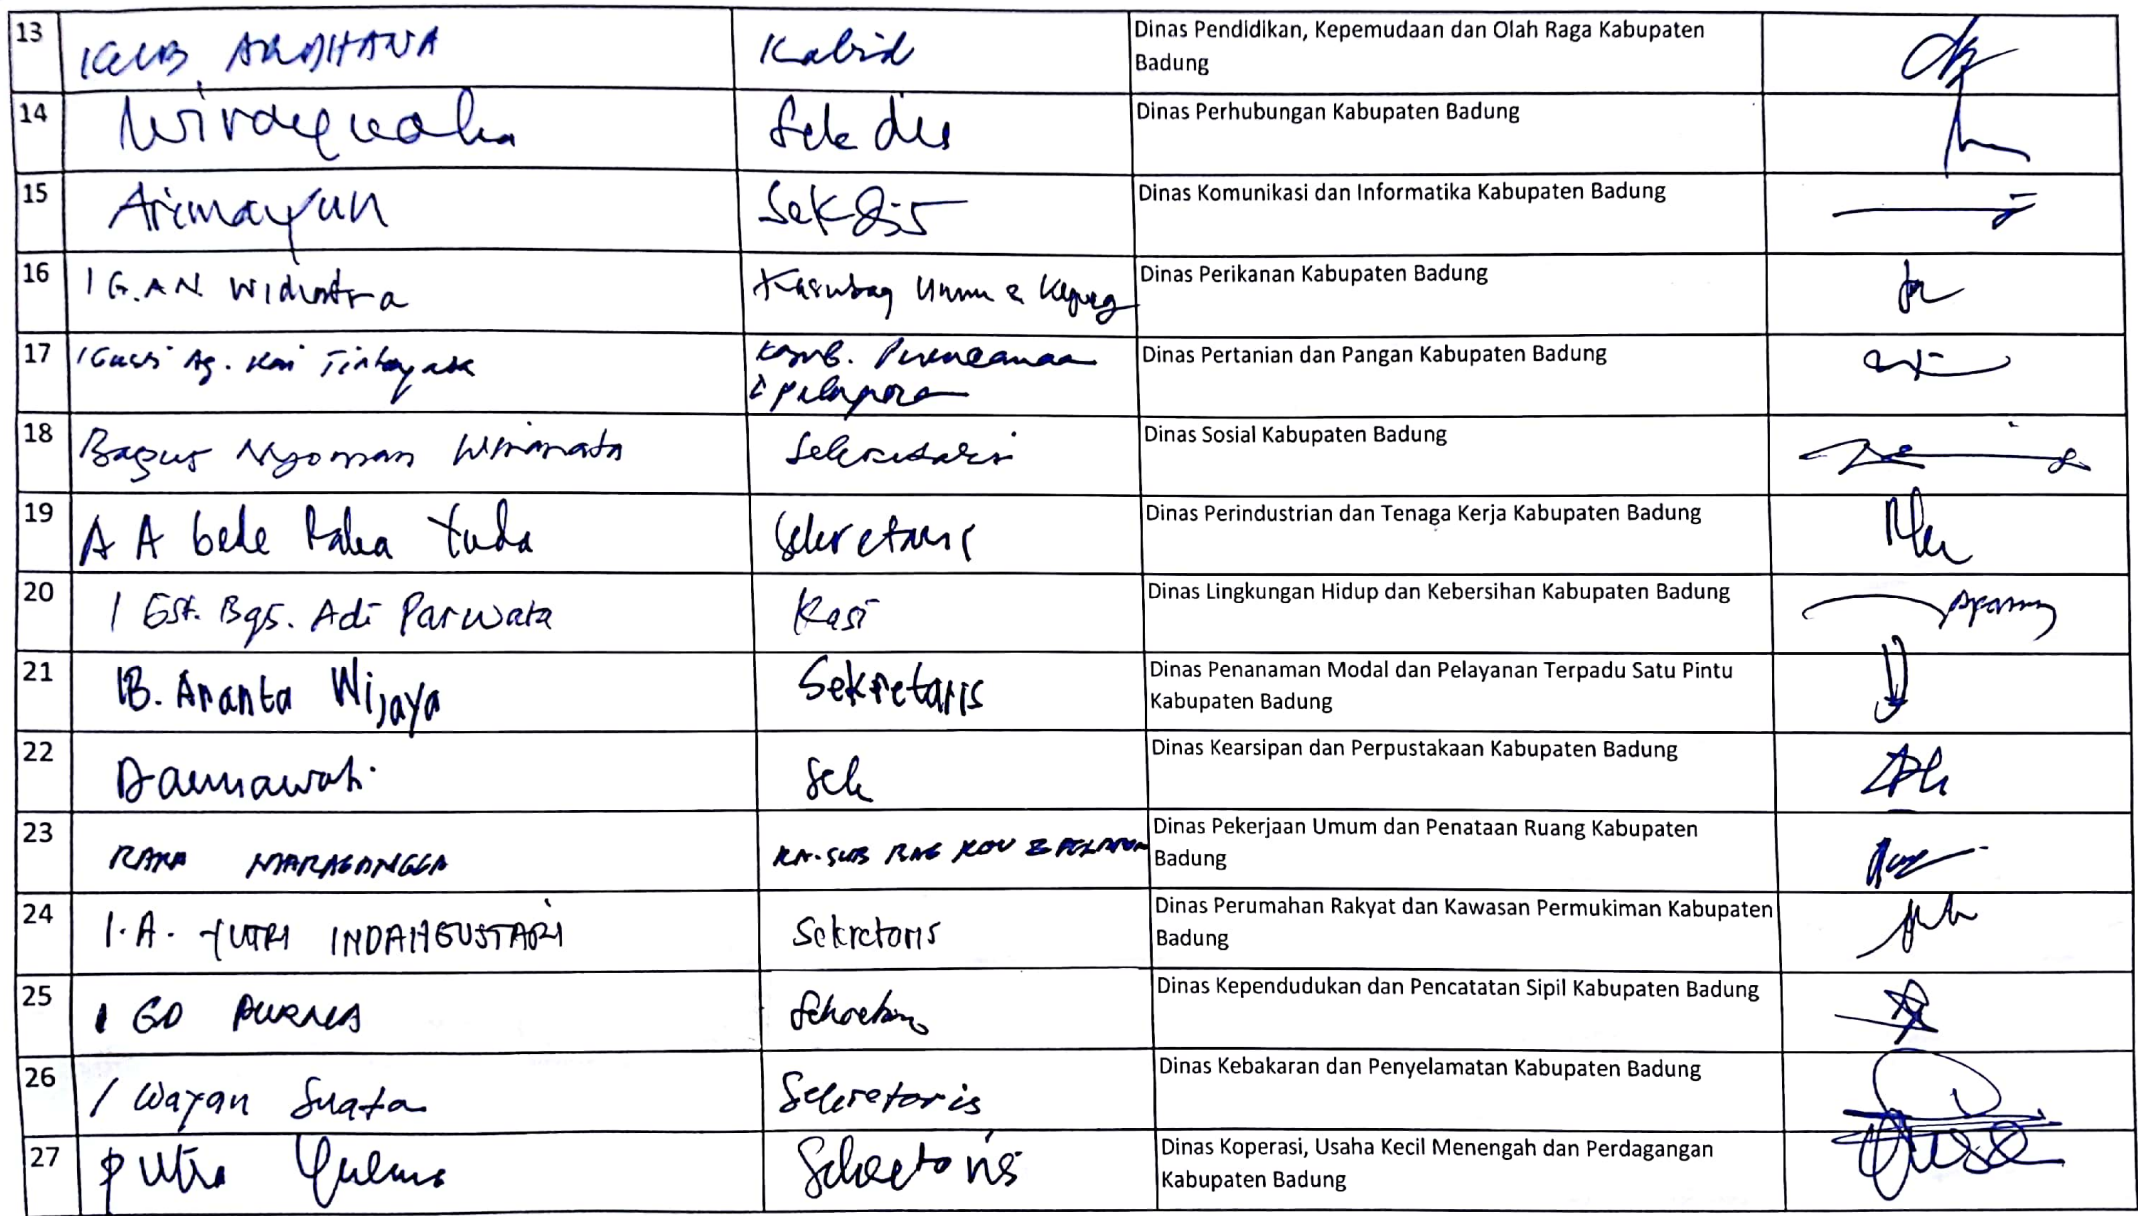 13 ARDHANA Kabid Dinas Pendidikan, Kepemudaan dan Olah Raga Kabupaten
Badung
14 Sekdis Dinas Perhubungan Kabupaten Badung
15 Arimayun Dinas Komunikasi dan Informatika Kabupaten Badung
16 I G.AN Widiatra Kasubag Umum & Kepeg Dinas Perikanan Kabupaten Badung
17 Ag. Rai Perencanaan Dinas Pertanian dan Pangan Kabupaten Badung
18 Bagus Nyoman Wiranata Sekretaris Dinas Sosial Kabupaten Badung
19 A A Gede Raka Yuda Sekretaris Dinas Perindustrian dan Tenaga Kerja Kabupaten Badung
20 I Gst. Bgs. Adi Parwata Kasi Dinas Lingkungan Hidup dan Kebersihan Kabupaten Badung
21 IB. Ananta Wijaya Sekretaris Dinas Penanaman Modal dan Pelayanan Terpadu Satu Pintu
Kabupaten Badung
22 Darmawati Sek Dinas Kearsipan dan Perpustakaan Kabupaten Badung
23 RAKA KA.SUB BAG KEU & Dinas Pekerjaan Umum dan Penataan Ruang Kabupaten
Badung
24 I.A. INDAHGUSTARI Sekretaris Dinas Perumahan Rakyat dan Kawasan Permukiman Kabupaten
Badung
25 I GD Sekretaris Dinas Kependudukan dan Pencatatan Sipil Kabupaten Badung
26 I Wayan Suata Sekretaris Dinas Kebakaran dan Penyelamatan Kabupaten Badung
27 Putu Sekretaris Dinas Koperasi, Usaha Kecil Menengah dan Perdagangan
Kabupaten Badung